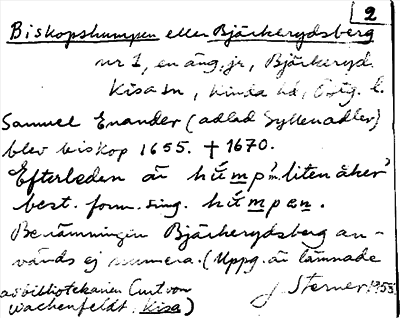 2
Biskopshumpen eller Bjärkerydsberg
nr 1, en äng, jr, Bjärkeryd.
Kisa sn, Kinda hd, Östg. l.
Samuel Enander (adlad Gyllenadler)
blev biskop 1655. † 1670.
Efterleden är húmp m. 'liten åker'
best. form. sing. húmpen.
Benämningen Bjärkerydsberg an-
vänds ej numera. (Uppg. är lämnade
av bibliotekarien Curt von
Wachenfeldt, Kisa)
J Sterner 1953